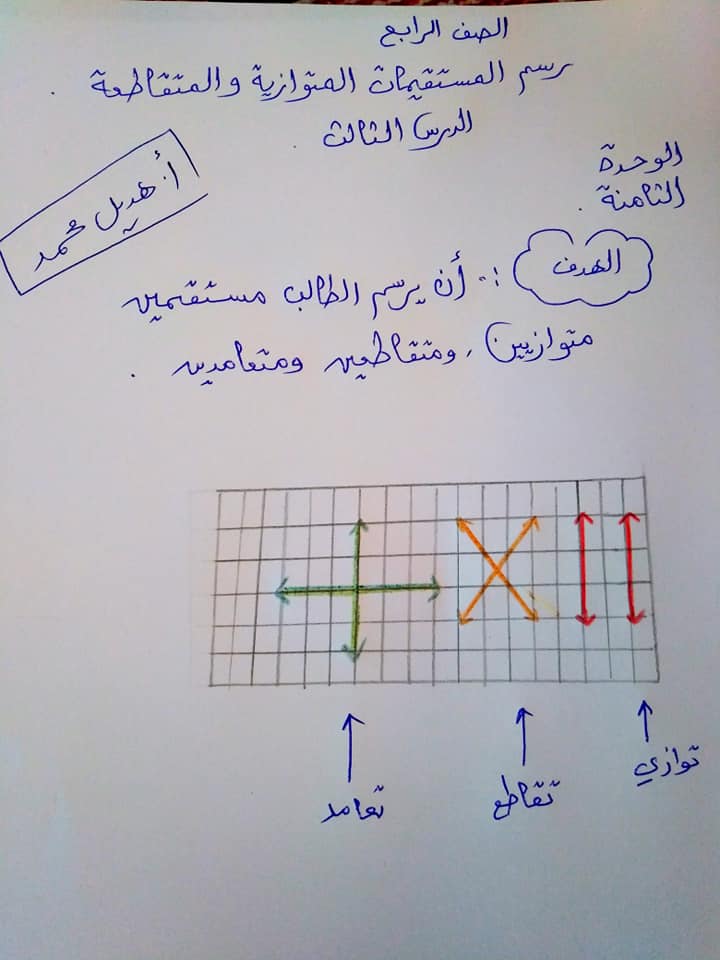 الصف الرابع
رسم المستقيمات المتوازية والمتقاطعة .
الدرس الثالث .
الوحدة
الثامنة .
أ. هديل محمد
الهدف : أن يرسم الطالب مستقيمين
متوازيين , ومتقاطعين ومتعامدين .
توازي
تقاطع
تعامد